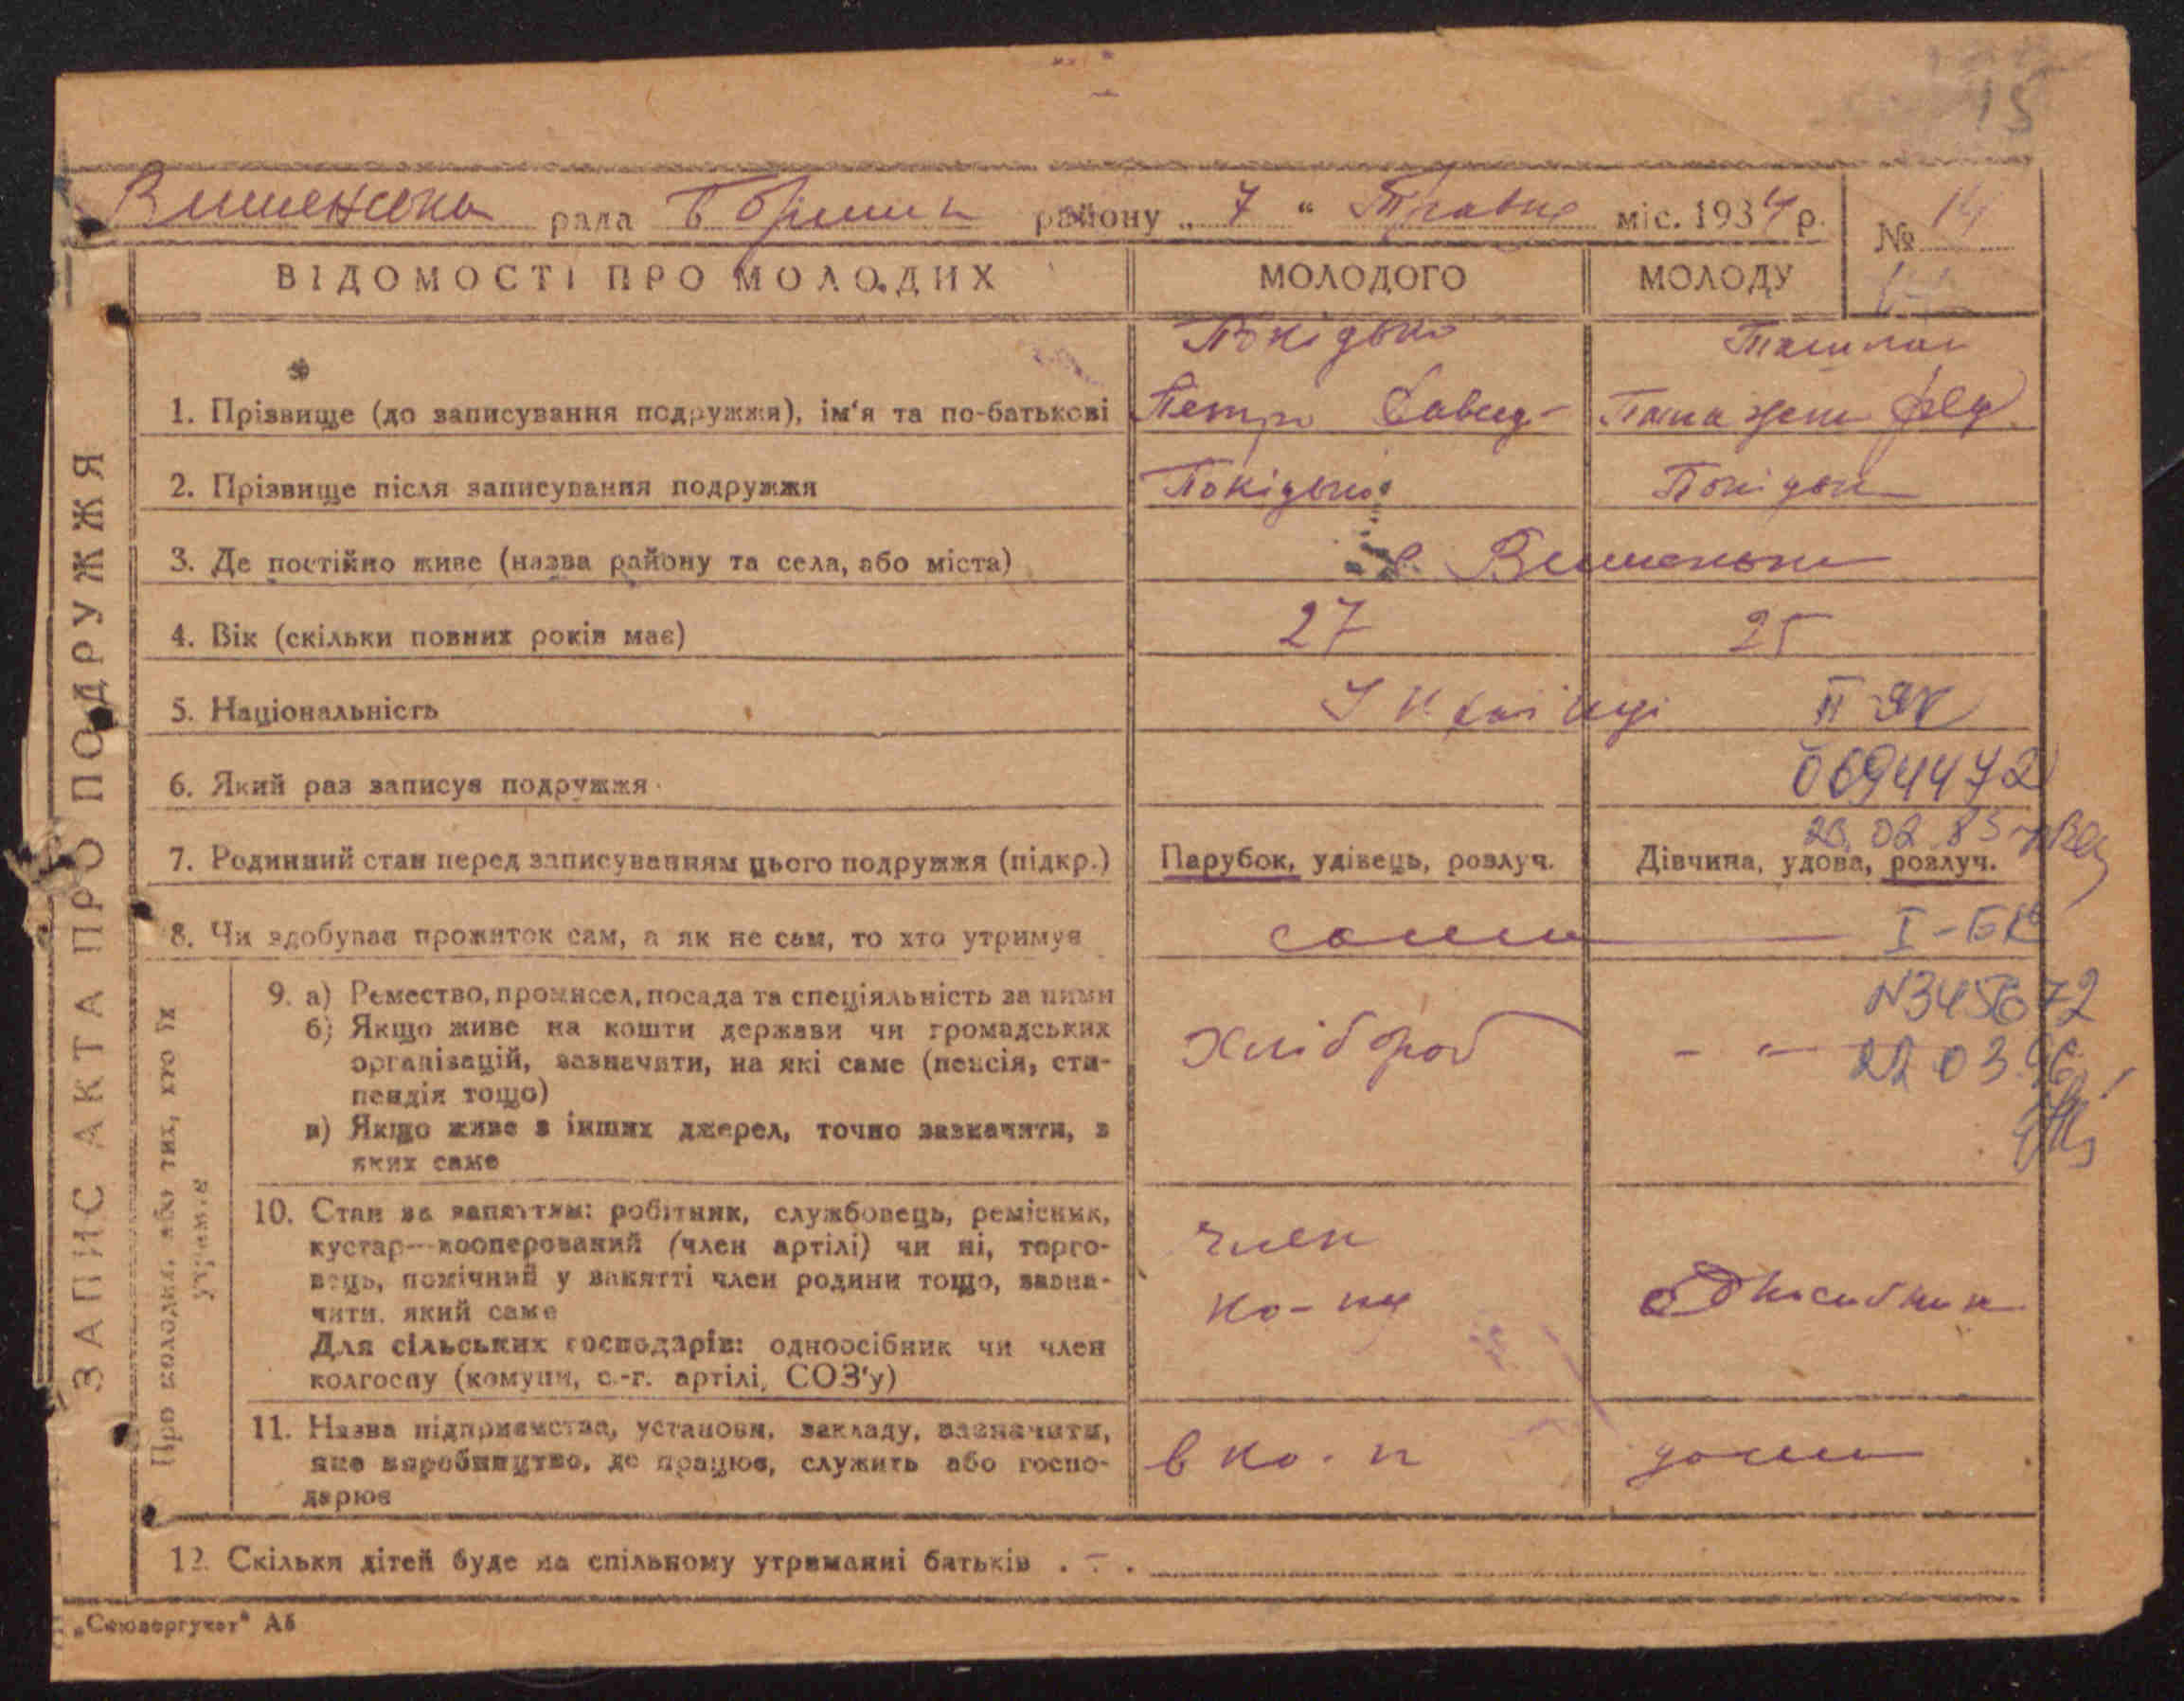 15
Вишенська рада району „ 7 “ Травня міс. 1934 р. № 14
ВІДОМОСТІ ПРО МОЛОДИХ МОЛОДОГО МОЛОДУ
Покідько
1. Прізвище (до записування подружжя), ім'я та по-батькові Петро Савид-
2. Прізвище після записування подружжя Покідько Покідько
3. Де постійно живе (назва району та села, або міста) с. Вишеньки
4. Вік (скільки повних років має) 27 25
5. Національність Українці II ЯК
6. Який раз записує подружжя 0694472
23.02.85
7. Родинний стан перед записуванням цього подружжя (підкр.) Парубок, удівець, розлуч. Дівчина, удова, розлуч.
8. Чи здобував прожиток сам, а як не сам, то хто утримує сами I-БК
9. а) Ремество, промисел, посада та спеціяльність за ними N345672
б) Якщо живе на кошти держави чи громадських Хлібороб - " -
організацій, зазначити, на які саме (пенсія, сти- 22 03 96
пендія тощо)
в) Якщо живе з інших джерел, точно зазначити, з
яких саме
10. Стан за заняттям: робітник, службовець, ремісник, член
кустар—кооперований (член артілі) чи ні, торго-
вець, помічний у занятті член родини тощо, зазна- ко-пу Односибник
чити, який саме
Для сільських господарів: одноосібник чи член
колгоспу (комуни, с.-г. артілі, СОЗ'у)
11. Назва підприємства, установи, закладу, зазначити,
яке виробництво, де працює, служить або госпо- в ко-п дома
дарює
12. Скільки дітей буде на спільному утриманні батьків . - .
ЗАПИС АКТА ПРО ПОДРУЖЖЯ
Про молодих, або тих, хто їх
утримує
„Союзоргучет“ А5